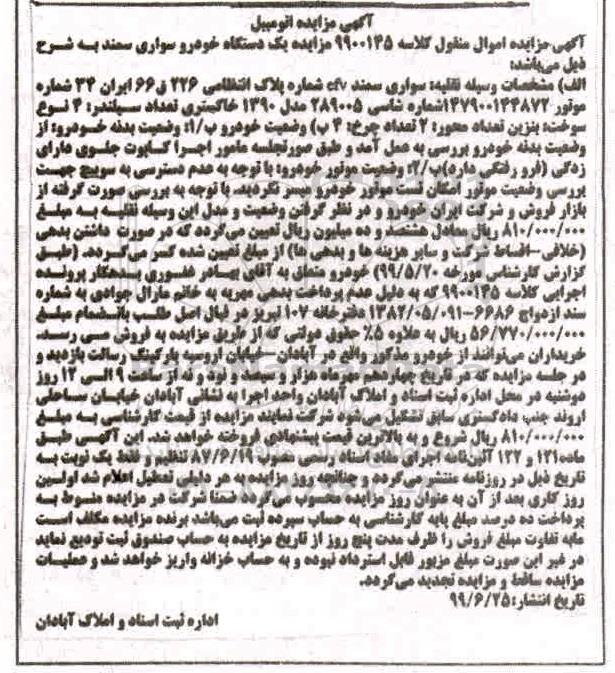 آگهی مزایده اتومبیل
آگهی مزایده اموال منقول کلاسه ۹۹۰۰۱۴۵ مزایده یک دستگاه خودرو سواری سمند به شرح
ذیل می‌باشد:
الف) مشخصات وسیله نقلیه: سواری سمند cfv شماره پلاک انتظامی ۲۲۶ ق ۶۶ ایران ۳۴ شماره
موتور ۱۴۷۹۰۰۱۴۴۸۷۲ شماره شاسی ۲۸۹۰۰۵ مدل ۱۳۹۰ خاکستری تعداد سیلندر: ۴ نوع
سوخت: بنزین تعداد محور: ۲ تعداد چرخ: ۴ ب) وضعیت خودرو ب/۱: وضعیت بدنه خودرو: از
وضعیت بدنه خودرو بررسی به عمل آمد و طبق صورتجلسه مامور اجرا کاپوت جلوی دارای
زدگی (فرو رفتگی دارد) ب/۲: وضعیت موتور خودرو: با توجه به عدم دسترسی به سوییچ جهت
بررسی وضعیت موتور امکان تست موتور خودرو میسر نگردید. با توجه به بررسی صورت گرفته از
بازار فروش و شرکت ایران خودرو و در نظر گرفتن وضعیت و مدل این وسیله نقلیه به مبلغ
۸۱۰/۰۰۰/۰۰۰ ریال معادل هشتصد و ده میلیون ریال تعیین می‌گردد که در صورت داشتن بدهی
(خلافی-اقساط شرکت و سایر هزینه ها و بدهی ها) از مبلغ تعیین شده کسر می‌گردد. (طبق
گزارش کارشناس مورخه ۹۹/۵/۲۰) خودرو متعلق به آقای بهادر غفوری بدهکار پرونده
اجرایی کلاسه ۹۹۰۰۱۴۵ که به دلیل عدم پرداخت بدهی مهریه به خانم مارال جوادی به شماره
سند ازدواج ۶۶۸۶-۱۳۸۲/۰۵/۰۹۱ دفترخانه ۱۰۷ تبریز در قبال اصل طلب بانضمام مبلغ
۵۶/۷۷۰/۰۰۰/۰۰۰ ریال به علاوه ۵٪ حقوق دولتی که از طریق مزایده به فروش می رسد.
خریداران می‌توانند از خودرو مذکور واقع در آبادان-خیابان اروسیه پارکینگ رسالت بازدید و
در جلسه مزایده که در تاریخ چهاردهم مهرماه هزار و سیصد و نود و نه از ساعت ۹ الی ۱۲ روز
دوشنبه در محل اداره ثبت اسناد و املاک آبادان واحد اجرا به نشانی آبادان خیابان ساحلی
اروند جنب دادگستری سابق تشکیل می‌شود شرکت نمایند مزایده از قیمت کارشناسی به مبلغ
۸۱۰/۰۰۰/۰۰۰ ریال شروع و به بالاترین قیمت پیشنهادی فروخته خواهد شد. این آگهی طبق
ماده ۱۲۱ و ۱۲۲ آئین‌نامه اجرای مفاد اسناد رسمی مصوب ۸۷/۶/۱۹ تنظیم و فقط یک نوبت به
تاریخ ذیل در روزنامه منتشر می‌گردد و چنانچه روز مزایده به هر دلیلی تعطیل اعلام شد اولین
روز کاری بعد از آن به عنوان روز مزایده محسوب می‌گردد. ضمنا شرکت در مزایده منوط به
پرداخت ده درصد مبلغ پایه کارشناسی به حساب سپرده ثبت می‌باشد برنده مزایده مکلف است
مابه تفاوت مبلغ فروش را ظرف مدت پنج روز از تاریخ مزایده به حساب صندوق ثبت تودیع نماید
در غیر این صورت مبلغ مزبور قابل استرداد نبوده و به حساب خزانه واریز خواهد شد و عملیات
مزایده ساقط و مزایده تجدید می‌گردد.
تاریخ انتشار: ۹۹/۶/۲۵
اداره ثبت اسناد و املاک آبادان